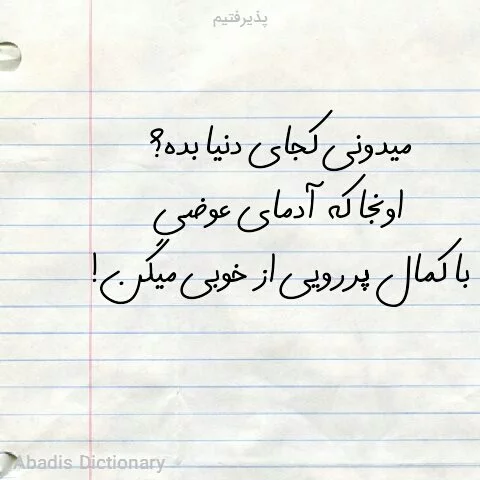 پذیرفتیم
میدونی کجای دنیا بده؟
اونجا که آدمای عوضی
با کمال پررویی از خوبی میگن!
Abadis Dictionary